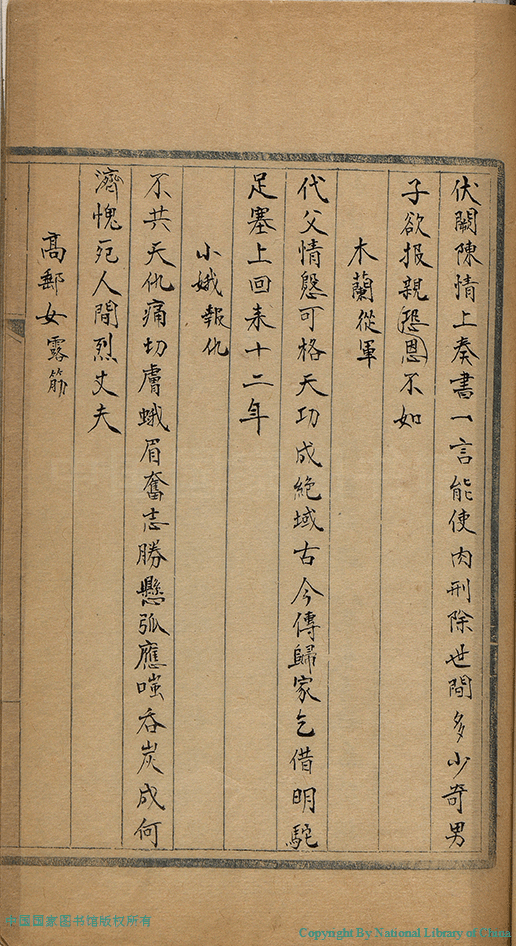 伏闕陳情上奏書一言能使肉刑除世間多少奇男
子欲报親恐恩不如
木蘭從軍
代父情慇可格天功成絶域古今傳歸家乞借明駝
足塞上回来十二年
小娥報仇
不共天仇痛切膚蛾眉奮志勝懸弧應嗤吞炭成何
濟愧死人間烈丈夫
高郵女露筋
中国国家图书馆版权所有
Copyright By National Library of China